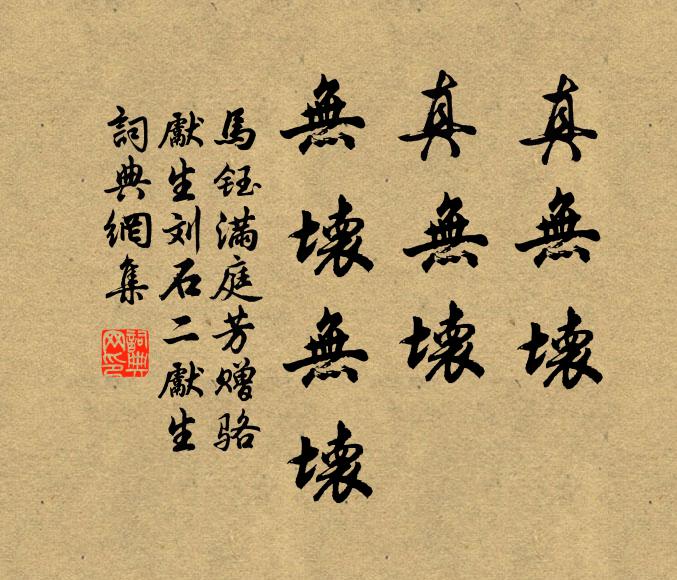 真無壞
真無壞
無壞無壞
馬鈺满庭芳赠骆
獻生刘石二獻生
詞典網集
詞典網印